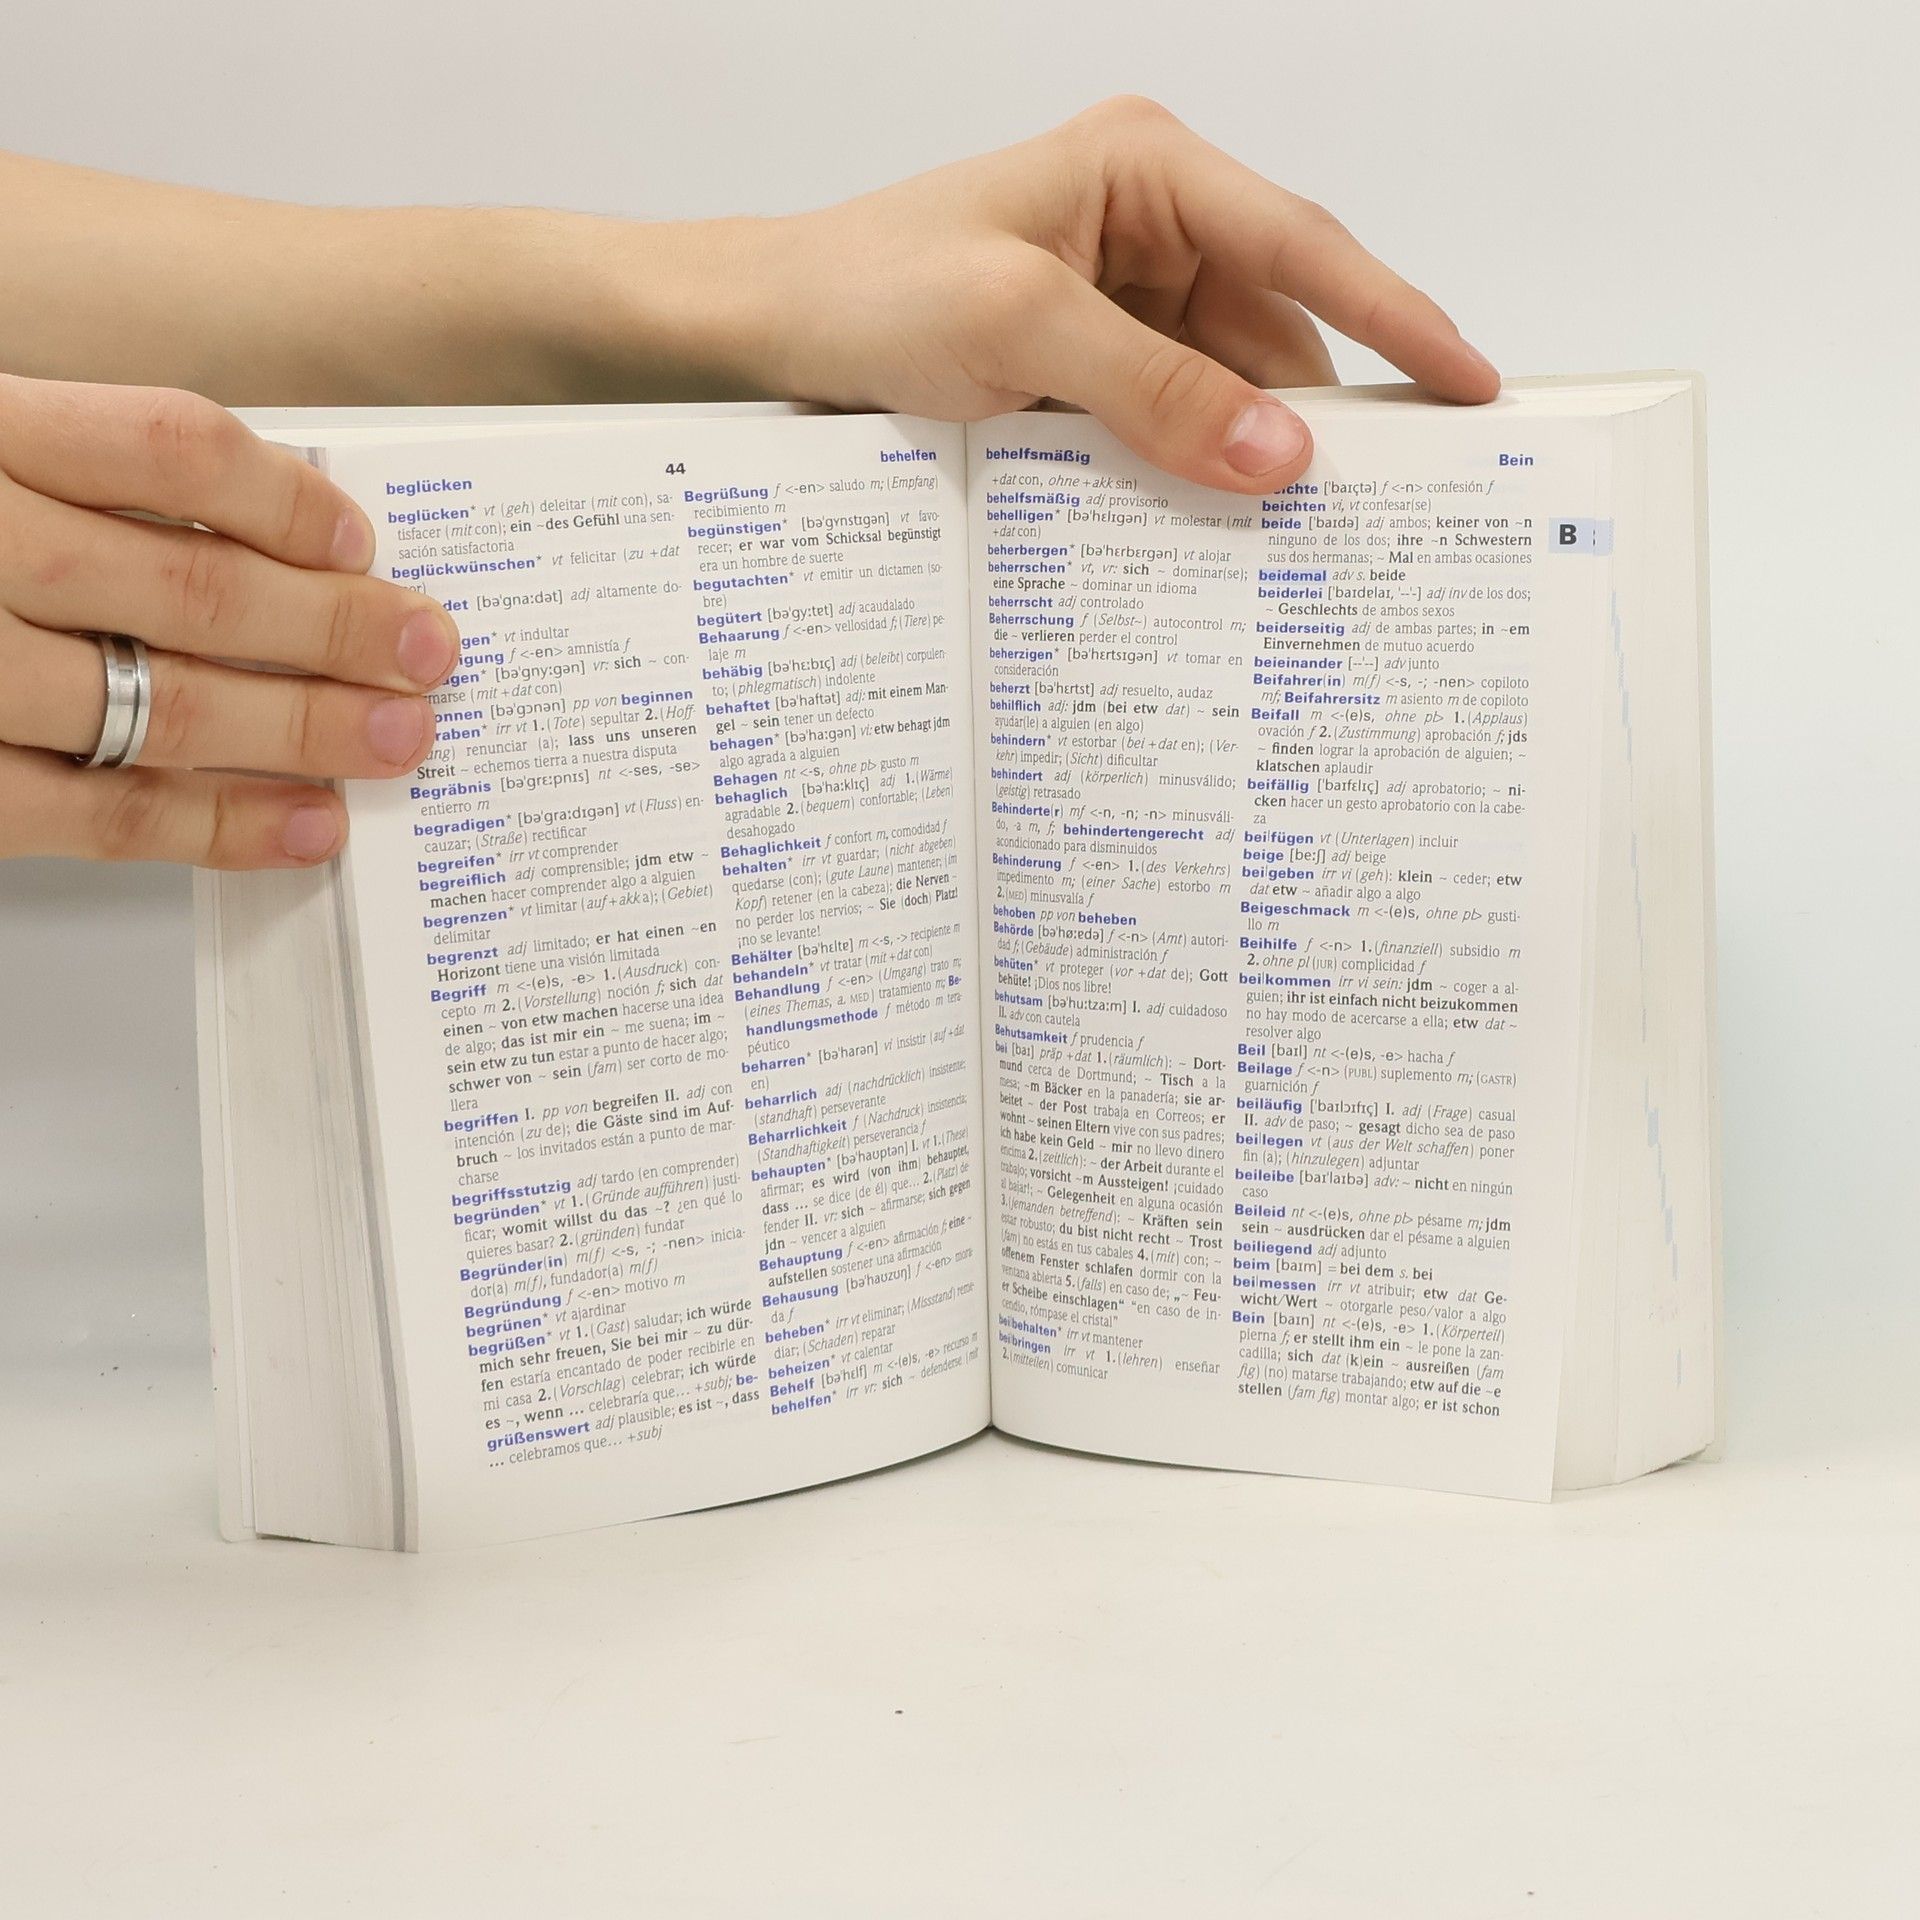 beglücken
44
behelfen
beglücken* vt (geh) deleitar (mit con), sa-
tisfacer (mit con); ein ~des Gefühl una sen-
sación satisfactoria
beglückwünschen* vt felicitar (zu +dat
or)
det [bəˈgnaːdət] adj altamente do-
gen* vt indultar
igung f <-en> amnistía f
gen* [bəˈgnyːgən] vr: sich ~ con-
marse (mit +dat con)
onnen [bəˈgɔnən] pp von beginnen
raben* irr vt 1. (Tote) sepultar 2. (Hoff-
ung) renunciar (a); lass uns unseren
Streit ~ echemos tierra a nuestra disputa
Begräbnis [bəˈgrɛːpnɪs] nt <-ses, -se>
entierro m
begradigen* [bəˈgraːdɪgən] vt (Fluss) en-
cauzar; (Straße) rectificar
begreifen* irr vt comprender
begreiflich adj comprensible; jdm etw ~
machen hacer comprender algo a alguien
begrenzen* vt limitar (auf +akk a); (Gebiet)
delimitar
begrenzt adj limitado; er hat einen ~en
Horizont tiene una visión limitada
Begriff m <-(e)s, -e> 1. (Ausdruck) con-
cepto m 2. (Vorstellung) noción f; sich dat
einen ~ von etw machen hacerse una idea
de algo; das ist mir ein ~ me suena; im ~
sein etw zu tun estar a punto de hacer algo;
schwer von ~ sein (fam) ser corto de mo-
llera
begriffen I. pp von begreifen II. adj con
intención (zu de); die Gäste sind im Auf-
bruch ~ los invitados están a punto de mar-
charse
begriffsstutzig adj tardo (en comprender)
begründen* vt 1. (Gründe aufführen) justi-
ficar; womit willst du das ~? ¿en qué lo
quieres basar? 2. (gründen) fundar
Begründer(in) m(f) <-s, -; -nen> inicia-
dor(a) m(f), fundador(a) m(f)
Begründung f <-en> motivo m
begrünen* vt ajardinar
begrüßen* vt 1. (Gast) saludar; ich würde
mich sehr freuen, Sie bei mir ~ zu dür-
fen estaría encantado de poder recibirle en
mi casa 2. (Vorschlag) celebrar; ich würde
es ~, wenn ... celebraría que... +subj; be-
grüßenswert adj plausible; es ist ~, dass
... celebramos que... +subj
Begrüßung f <-en> saludo m; (Empfang)
recibimiento m
begünstigen* [bəˈgʏnstɪgən] vt favo-
recer; er war vom Schicksal begünstigt
era un hombre de suerte
begutachten* vt emitir un dictamen (so-
bre)
begütert [bəˈgyːtɐt] adj acaudalado
Behaarung f <-en> vellosidad f; (Tiere) pe-
laje m
behäbig [bəˈhɛːbɪç] adj (beleibt) corpulen-
to; (phlegmatisch) indolente
behaftet [bəˈhaftət] adj: mit einem Man-
gel ~ sein tener un defecto
behagen* [bəˈhaːgən] vi: etw behagt jdm
algo agrada a alguien
Behagen nt <-s, ohne pl> gusto m
behaglich [bəˈhaːklɪç] adj 1. (Wärme)
agradable 2. (bequem) confortable; (Leben)
desahogado
Behaglichkeit f confort m, comodidad f
behalten* irr vt guardar; (nicht abgeben)
quedarse (con); (gute Laune) mantener; (im
Kopf) retener (en la cabeza); die Nerven ~
no perder los nervios; ~ Sie (doch) Platz!
¡no se levante!
Behälter [bəˈhɛltɐ] m <-s, -> recipiente m
behandeln* vt tratar (mit +dat con)
Behandlung f <-en> (Umgang) trato m;
(eines Themas, a. MED) tratamiento m; Be-
handlungsmethode f método m tera-
péutico
beharren* [bəˈharən] vi insistir (auf +dat
en)
beharrlich adj (nachdrücklich) insistente;
(standhaft) perseverante
Beharrlichkeit f (Nachdruck) insistencia;
(Standhaftigkeit) perseverancia f
behaupten* [bəˈhaʊptən] I. vt 1. (These)
afirmar; es wird (von ihm) behauptet,
dass ... se dice (de él) que... 2. (Platz) de
fender II. vr: sich ~ afirmarse; sich gegen
jdn ~ vencer a alguien
Behauptung f <-en> afirmación f; eine ~
aufstellen sostener una afirmación
Behausung [bəˈhaʊzʊŋ] f <-en> mora
da f
beheben* irr vt eliminar; (Missstand) reme-
diar; (Schaden) reparar
beheizen* vt calentar
Behelf [bəˈhɛlf] m <-(e)s, -e> recurso m
behelfen* irr vr: sich ~ defenderse (mit
behelfsmäßig
Bein
+dat con, ohne +akk sin)
behelfsmäßig adj provisorio
behelligen* [bəˈhɛlɪgən] vt molestar (mit
+dat con)
beherbergen* [bəˈhɛrbɛrgən] vt alojar
beherrschen* vt, vr: sich ~ dominar(se);
eine Sprache ~ dominar un idioma
beherrscht adj controlado
Beherrschung f (Selbst~) autocontrol m;
die ~ verlieren perder el control
beherzigen* [bəˈhɛrtsɪgən] vt tomar en
consideración
beherzt [bəˈhɛrtst] adj resuelto, audaz
behilflich adj: jdm (bei etw dat) ~ sein
ayudar(le) a alguien (en algo)
behindern* vt estorbar (bei +dat en); (Ver-
kehr) impedir; (Sicht) dificultar
behindert adj (körperlich) minusválido;
(geistig) retrasado
Behinderte(r) mf <-n, -n; -n> minusváli-
do, -a m, f; behindertengerecht adj
acondicionado para disminuidos
Behinderung f <-en> 1. (des Verkehrs)
impedimento m; (einer Sache) estorbo m
2. (MED) minusvalía f
behoben pp von beheben
Behörde [bəˈhøːɐdə] f <-n> (Amt) autori-
dad f; (Gebäude) administración f
behüten* vt proteger (vor +dat de); Gott
behüte! ¡Dios nos libre!
behutsam [bəˈhuːtzaːm] I. adj cuidadoso
II. adv con cautela
Behutsamkeit f prudencia f
bei [baɪ] präp +dat 1. (räumlich): ~ Dort-
mund cerca de Dortmund; ~ Tisch a la
mesa; ~m Bäcker en la panadería; sie ar-
beitet ~ der Post trabaja en Correos; er
wohnt ~ seinen Eltern vive con sus padres;
ich habe kein Geld ~ mir no llevo dinero
encima 2. (zeitlich): ~ der Arbeit durante el
trabajo; vorsicht ~m Aussteigen! ¡cuidado
al bajar!; ~ Gelegenheit en alguna ocasión
3. (jemanden betreffend): ~ Kräften sein
estar robusto; du bist nicht recht ~ Trost
(fam) no estás en tus cabales 4. (mit) con; ~
offenem Fenster schlafen dormir con la
ventana abierta 5. (falls) en caso de; „~ Feu-
er Scheibe einschlagen“ “en caso de in-
cendio, rómpase el cristal”
bei|behalten* irr vt mantener
bei|bringen irr vt 1. (lehren) enseñar
2. (mitteilen) comunicar
ichte [ˈbaɪçtə] f <-n> confesión f
beichten vi, vt confesar(se)
beide [ˈbaɪdə] adj ambos; keiner von ~n
ninguno de los dos; ihre ~n Schwestern
sus dos hermanas; ~ Mal en ambas ocasiones
beidemal adv s. beide
beiderlei [ˈbaɪdɐlaɪ, ˈ--ˈ-] adj inv de los dos;
~ Geschlechts de ambos sexos
beiderseitig adj de ambas partes; in ~em
Einvernehmen de mutuo acuerdo
beieinander [--ˈ--] adv junto
Beifahrer(in) m(f) <-s, -; -nen> copiloto
mf; Beifahrersitz m asiento m de copiloto
Beifall m <-(e)s, ohne pl> 1. (Applaus)
ovación f 2. (Zustimmung) aprobación f; jds
~ finden lograr la aprobación de alguien; ~
klatschen aplaudir
beifällig [ˈbaɪfɛlɪç] adj aprobatorio; ~ ni-
cken hacer un gesto aprobatorio con la cabe-
za
bei|fügen vt (Unterlagen) incluir
beige [beːʃ] adj beige
bei|geben irr vi (geh): klein ~ ceder; etw
dat etw ~ añadir algo a algo
Beigeschmack m <-(e)s, ohne pl> gusti-
llo m
Beihilfe f <-n> 1. (finanziell) subsidio m
2. ohne pl (JUR) complicidad f
bei|kommen irr vi sein: jdm ~ coger a al-
guien; ihr ist einfach nicht beizukommen
no hay modo de acercarse a ella; etw dat ~
resolver algo
Beil [baɪl] nt <-(e)s, -e> hacha f
Beilage f <-n> (PUBL) suplemento m; (GASTR)
guarnición f
beiläufig [ˈbaɪlɔɪfɪç] I. adj (Frage) casual
II. adv de paso; ~ gesagt dicho sea de paso
bei|legen vt (aus der Welt schaffen) poner
fin (a); (hinzulegen) adjuntar
beileibe [baɪˈlaɪbə] adv: ~ nicht en ningún
caso
Beileid nt <-(e)s, ohne pl> pésame m; jdm
sein ~ ausdrücken dar el pésame a alguien
beiliegend adj adjunto
beim [baɪm] = bei dem s. bei
bei|messen irr vt atribuir; etw dat Ge-
wicht/Wert ~ otorgarle peso/valor a algo
Bein [baɪn] nt <-(e)s, -e> 1. (Körperteil)
pierna f; er stellt ihm ein ~ le pone la zan-
cadilla; sich dat (k)ein ~ ausreißen (fam
fig) (no) matarse trabajando; etw auf die ~e
stellen (fam fig) montar algo; er ist schon
B